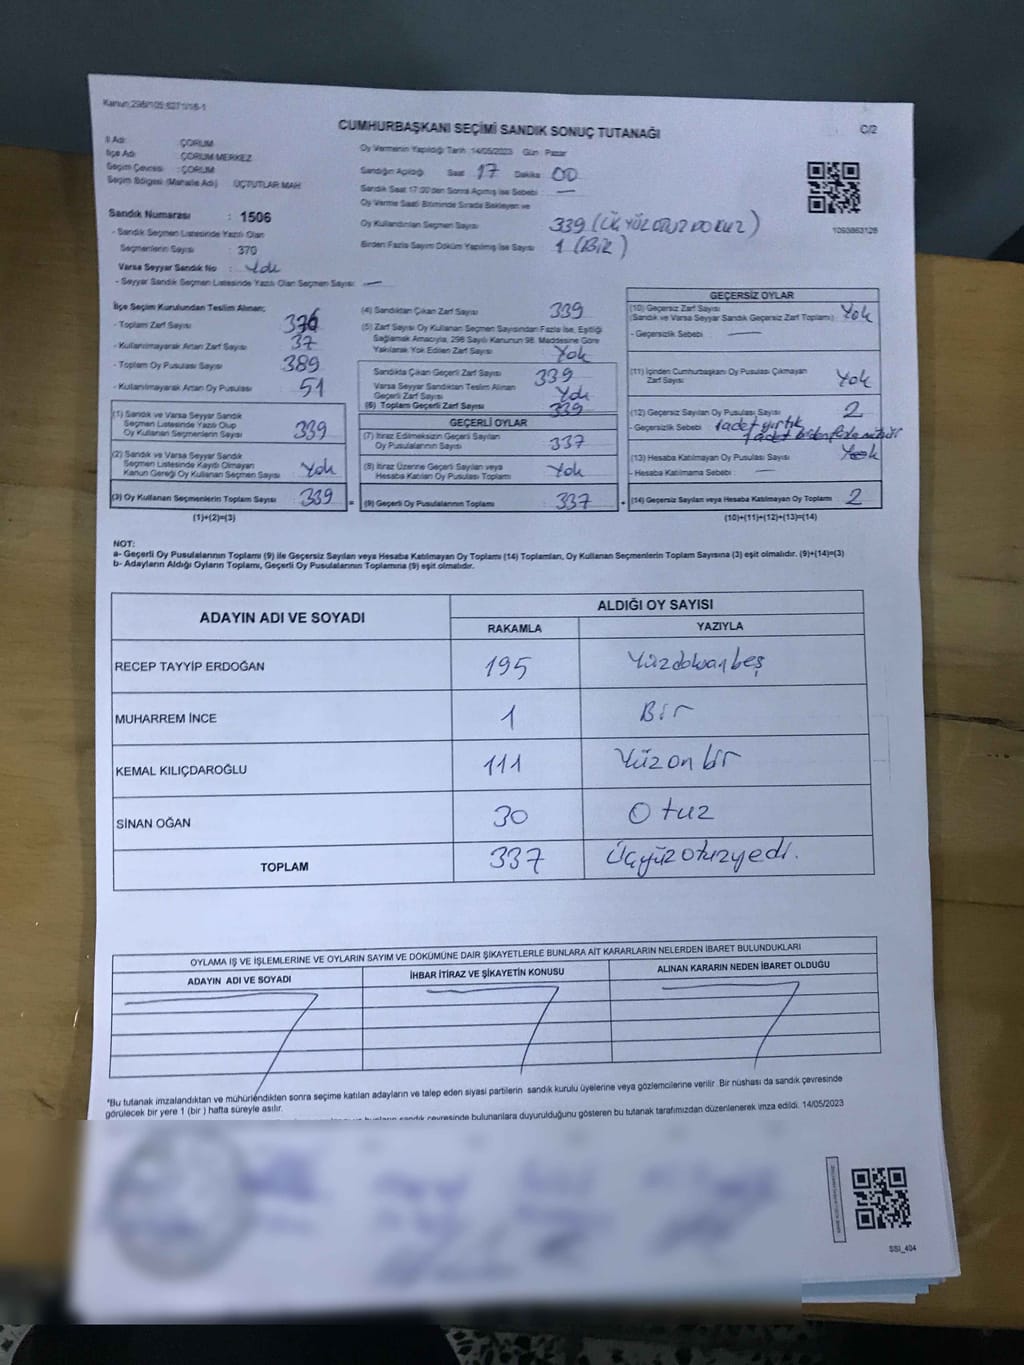 Kanun:298/105;6271/18-1
CUMHURBAŞKANI SEÇİMİ SANDIK SONUÇ TUTANAĞI
C/2
İl Adı : ÇORUM
İlçe Adı : ÇORUM MERKEZ
Seçim Çevresi : ÇORUM
Seçim Bölgesi (Mahalle Adı) : ÜÇTUTLAR MAH
Sandık Numarası : 1506
- Sandık Seçmen Listesinde Yazılı Olan
Seçmenlerin Sayısı : 370
Varsa Seyyar Sandık No : Yok
- Seyyar Sandık Seçmen Listesinde Yazılı Olan Seçmen Sayısı : —
Oy Vermenin Yapıldığı Tarih :14/05/2023 Gün : Pazar
Sandığın Açıldığı Saat : 17 Dakika : 00
Sandık Saat 17:00'den Sonra Açılmış İse Sebebi : —
Oy Verme Saati Bitiminde Sırada Bekleyen ve
Oy Kullandırılan Seçmen Sayısı : 339 (ÜÇ YÜZ OTUZ DOKUZ)
Birden Fazla Sayım Döküm Yapılmış İse Sayısı : 1 (BİR)
1093863128
İlçe Seçim Kurulundan Teslim Alınan;
- Toplam Zarf Sayısı : 376
- Kullanılmayarak Artan Zarf Sayısı : 37
- Toplam Oy Pusulası Sayısı : 389
- Kullanılmayarak Artan Oy Pusulası : 51
(1) Sandık ve Varsa Seyyar Sandık
Seçmen Listesinde Yazılı Olup
Oy Kullanan Seçmenlerin Sayısı : 339
(2) Sandık ve Varsa Seyyar Sandık
Seçmen Listesinde Kaydı Olmayan
Kanun Gereği Oy Kullanan Seçmen Sayısı : Yok
(3) Oy Kullanan Seçmenlerin Toplam Sayısı : 339 =
(1)+(2)=(3)
(4) Sandıktan Çıkan Zarf Sayısı : 339
(5) Zarf Sayısı Oy Kullanan Seçmen Sayısından Fazla İse, Eşitliği
Sağlamak Amacıyla, 298 Sayılı Kanunun 98. Maddesine Göre
Yakılarak Yok Edilen Zarf Sayısı : Yok
Sandıkta Çıkan Geçerli Zarf Sayısı : 339
Varsa Seyyar Sandıktan Teslim Alınan
Geçerli Zarf Sayısı : Yok
(6) Toplam Geçerli Zarf Sayısı : 339
GEÇERLİ OYLAR
(7) İtiraz Edilmeksizin Geçerli Sayılan
Oy Pusulalarının Sayısı : 337
(8) İtiraz Üzerine Geçerli Sayılan veya
Hesaba Katılan Oy Pusulası Toplamı : Yok
(9) Geçerli Oy Pusulalarının Toplamı : 337 +
GEÇERSİZ OYLAR
(10) Geçersiz Zarf Sayısı
(Sandık ve Varsa Seyyar Sandık Geçersiz Zarf Toplamı) : Yok
- Geçersizlik Sebebi : —
(11) İçinden Cumhurbaşkanı Oy Pusulası Çıkmayan
Zarf Sayısı : Yok
(12) Geçersiz Sayılan Oy Pusulası Sayısı : 2
- Geçersizlik Sebebi : 1 adet yırtık
1 adet birden fazla mühür
(13) Hesaba Katılmayan Oy Pusulası Sayısı : Yok
- Hesaba Katılmama Sebebi : —
(14) Geçersiz Sayılan veya Hesaba Katılmayan Oy Toplamı : 2
(10)+(11)+(12)+(13)=(14)
NOT:
a- Geçerli Oy Pusulalarının Toplamı (9) ile Geçersiz Sayılan veya Hesaba Katılmayan Oy Toplamı (14) Toplamları, Oy Kullanan Seçmenlerin Toplam Sayısına (3) eşit olmalıdır. (9)+(14)=(3)
b- Adayların Aldığı Oyların Toplamı, Geçerli Oy Pusulalarının Toplamına (9) eşit olmalıdır.
ADAYIN ADI VE SOYADI
ALDIĞI OY SAYISI
RAKAMLA YAZIYLA
RECEP TAYYİP ERDOĞAN 195 Yüzdoksanbeş
MUHARREM İNCE 1 Bir
KEMAL KILIÇDAROĞLU 111 Yüz on bir
SİNAN OĞAN 30 Otuz
TOPLAM 337 Üçyüzotuzyedi.
OYLAMA İŞ VE İŞLEMLERİNE VE OYLARIN SAYIM VE DÖKÜMÜNE DAİR ŞİKAYETLERLE BUNLARA AİT KARARLARIN NELERDEN İBARET BULUNDUKLARI
ADAYIN ADI VE SOYADI İHBAR İTİRAZ VE ŞİKAYETİN KONUSU ALINAN KARARIN NEDEN İBARET OLDUĞU
*Bu tutanak imzalandıktan ve mühürlendikten sonra seçime katılan adayların ve talep eden siyasi partilerin sandık kurulu üyelerine veya gözlemcilerine verilir. Bir nüshası da sandık çevresinde
görülecek bir yere 1 (bir) hafta süreyle asılır.
sandık çevresinde bulunanlara duyurulduğunu gösteren bu tutanak tarafımızdan düzenlenerek imza edildi. 14/05/2023
SSI_404